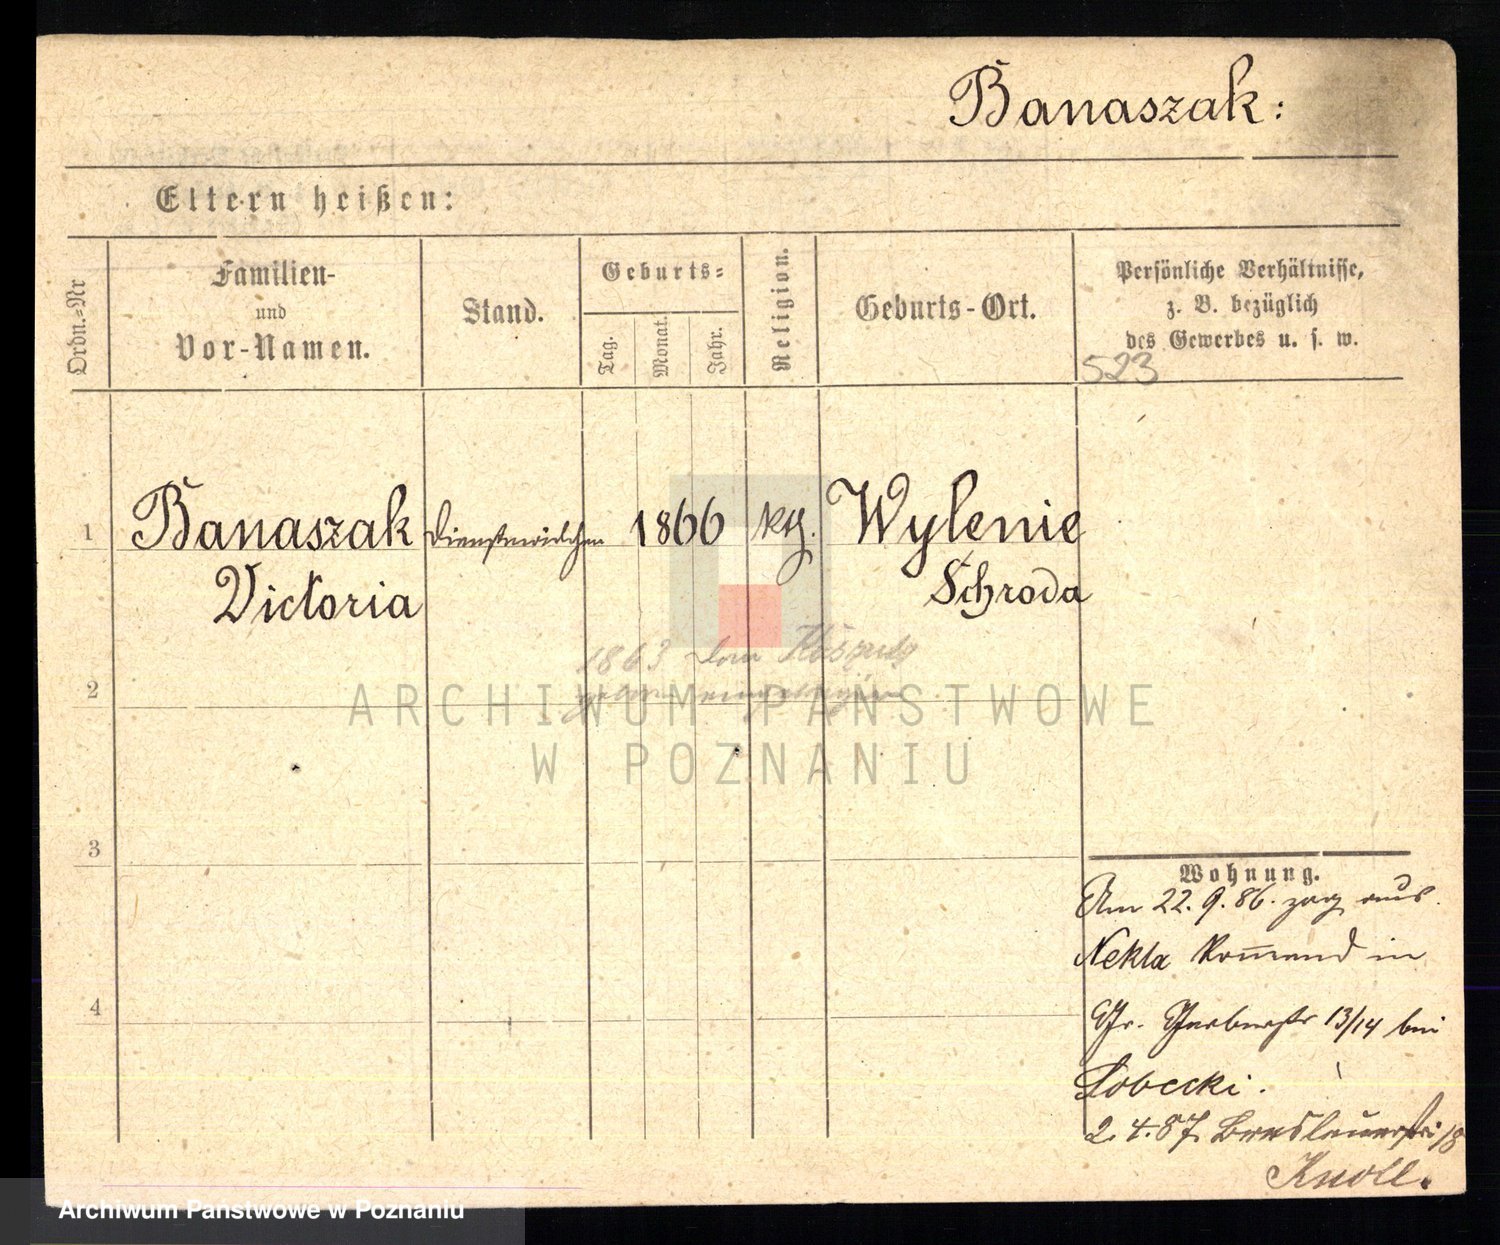 Banaszak:
Eltern heißen:
Ordn.=Nr
Familien-
und
Vor-Namen.
Stand.
Geburts=
Tag.
Monat.
Jahr.
Religion.
Geburts-Ort.
Persönliche Verhältnisse,
z. B. bezüglich
des Gewerbes u. s. w.
523
1 Banaszak Dienstmädchen 1866 kth. Wylenie
Victoria Schroda
1863
2
ARCHIWUM PAŃSTWOWE
W POZNANIU
3
Wohnung.
Am 22. 9. 86. zog aus
Nekla kom̄end in
4
Gr. Gerberstr 13/14 bei
Lobecki.
2. 4. 87. Breslauerstr 18
Knoll.
Archiwum Państwowe w Poznaniu